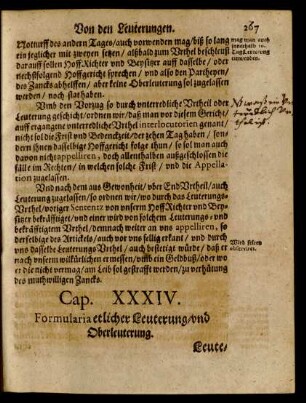 Von den Leuterungen. 267
Notturfft des andern Tages/auch vorwenden mag/biß so lang
ein jeglicher mit zweyen setzen/ alßbald zum Vrthel beschleust
darauff sollen Hoff Richter vnd Beysitzer auff dasselbe / oder
nechstfolgend Hoffgericht sprechen / vnd also den Partheyen/
des Zancks abhelffen/ aber keine Oberleuterung sol zugelassen
werden/ noch statt haben.
Vmb den Vorzug so durch vnterredliche Vrtheil oder
Leuterung geschicht/ ordnen wir/ daß man vor diesem Gericht/
auff ergangene vnterredliche Vrthel interlocutorien genant/
nicht sol die Frist vnd Bedenckzeit/ der zehen Tag haben / son-
dern ihnen dasselbige Hoffgericht folge thun / so sol man auch
davon nicht appelliren / doch allenthalben außgeschlossen die
fälle im Rechten/ in welchen solche Frist / vnd die Appella-
tion zugelassen.
Vnd nach dem aus Gewonheit/ vber End Vrtheil/ auch
Leuterung zugelassen/ so ordnen wir/ wo durch das Leuterungs
Vrthel/ voriger Sententz von vnserm Hoff Richter vnd Bey-
sitzer bekräfftiget/ vnd einer wird von solchem Leuterungs- vnd
bekräfftigtem Vrthel/ demnach weiter an vns appelliren, so
derselbige des Artickels/ auch vor vns fellig erkant / vnd durch
vns dasselbe Leuterungs Vrthel / auch bestetigt würde/ daß er
nach vnserm willkürlichen ermessen/ vmb ein Geldbuß/ oder wo
er die nicht vermag/ am Leib sol gestrafft werden/ zu verhütung
des muthwilligen Zancks.
Cap. XXXIV.
Formularia etlicher Leuterung/ vnd
Oberleuterung.
Leute/
mag man auch
innerhalb 10.
Tag Leuterung
einwenden.